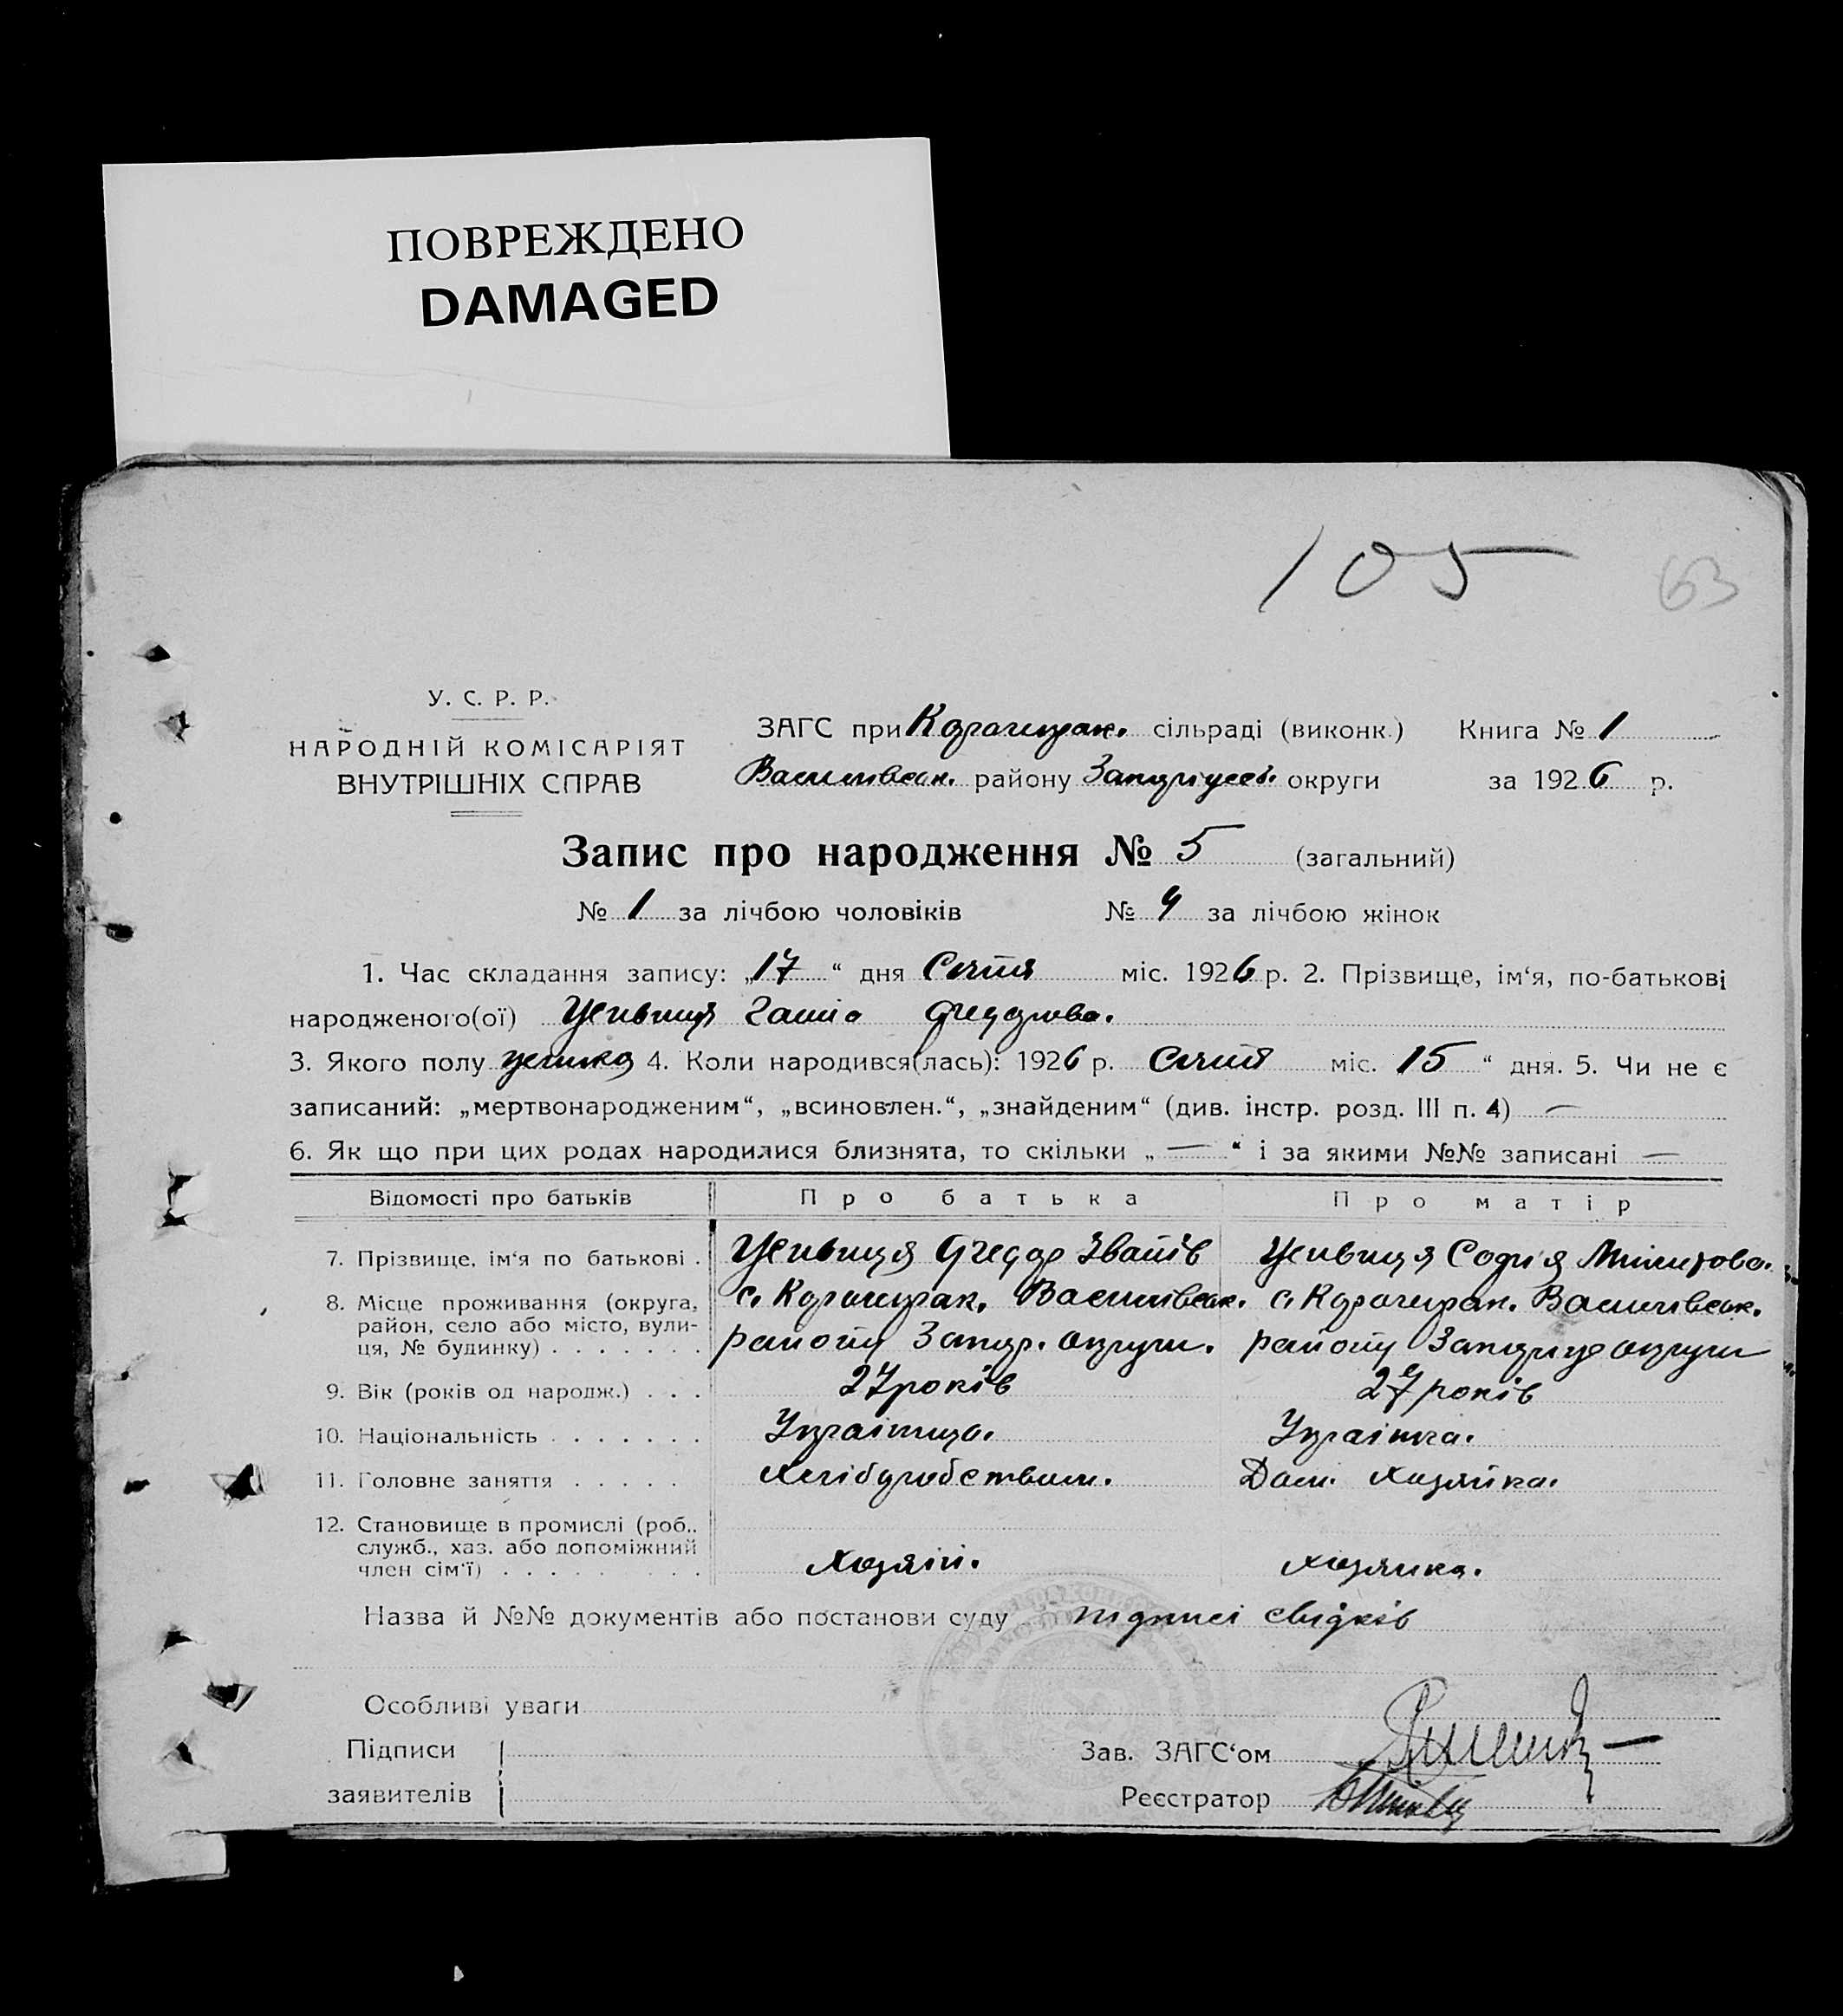 ПОВРЕЖДЕНО
DAMAGED
105
63
У. С. Р. Р.
НАРОДНІЙ КОМІСАРІЯТ
ВНУТРІШНІХ СПРАВ
ЗАГС при сільраді (виконк.) Книга № 1
Василівськ. району округи за 1926 р.
Запис про народження № 5 (загальний)
№ 1 за лічбою чоловіків № 4 за лічбою жінок
1. Час складання запису: „17“ дня Січня міс. 1926 р. 2. Прізвище, ім‘я, по-батькові
народженого(ої) Ганна Федорова.
3. Якого полу жіноко 4. Коли народився(лась): 1926 р. Січня міс. 15“ дня. 5. Чи не є
записаний: „мертвонародженим“, „всиновлен.“, „знайденим“ (див. інстр. розд. III п. 4) —
6. Як що при цих родах народилися близнята, то скільки „—“ і за якими №№ записані —
Відомості про батьків Про батька Про матір
7. Прізвище, ім‘я по батькові . Федор Іванів Софія
8. Місце проживання (округа, с. Василівськ. с. Василівськ.
район, село або місто, вули-
ця, № будинку) . . . . . . . району Запор. округи. району округи
9. Вік (років од народж.) . . . 27 років 27 років
10. Національність . . . . . . . Українець. Українка.
11. Головне заняття . . . . . Хліборобством. Дом. хозяйка.
12. Становище в промислі (роб.,
служб., хаз. або допоміжний
член сім‘ї) . . . . . . . . . Хозяїн. хозяйка.
Назва й №№ документів або постанови суду підписі свідків
Особливі уваги
Підписи Зав. ЗАГС‘ом
заявителів Реєстратор